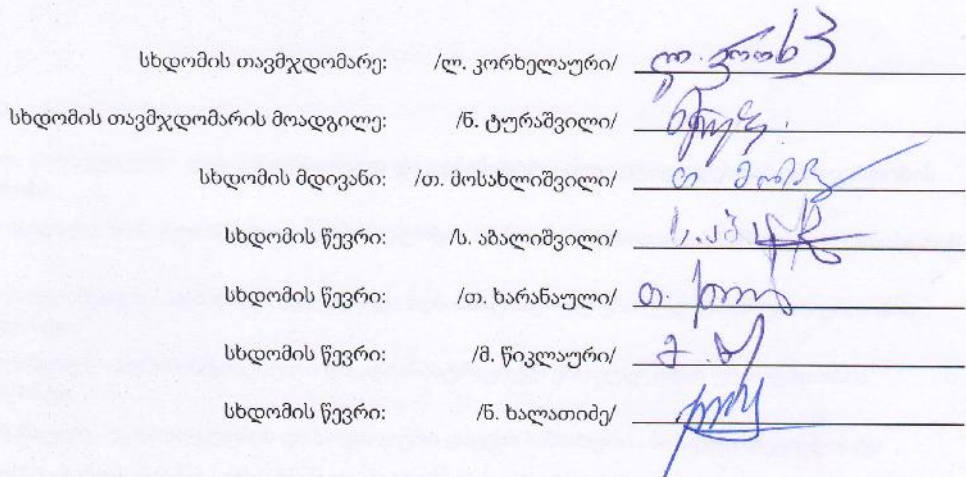 სხდომის თავმჯდომარე: /ლ. კორხელაური/
სხდომის თავმჯდომარის მოადგილე: /ნ. ტურაშვილი/
სხდომის მდივანი: /თ. მოსახლიშვილი/
სხდომის წევრი: /ს. აბალიშვილი/
სხდომის წევრი: /თ. ხარანაული/
სხდომის წევრი: /მ. წიკლაური/
სხდომის წევრი: /ნ. ხალათიძე/